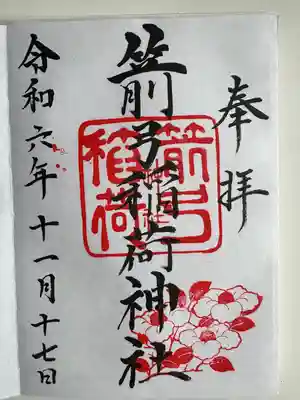 奉拝
箭弓稲荷神社
箭弓稲荷
令和六年十一月十七日